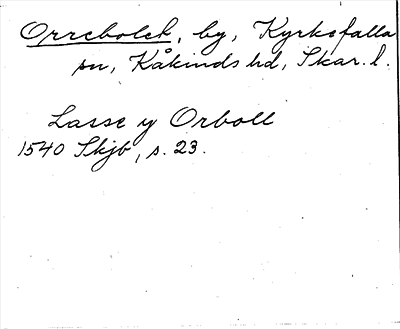 Orrebolet, by, Kyrkefalla
sn, Kåkinds hd, Skar. l.
Lasse y Orboll
1540 Skjb, s. 23.